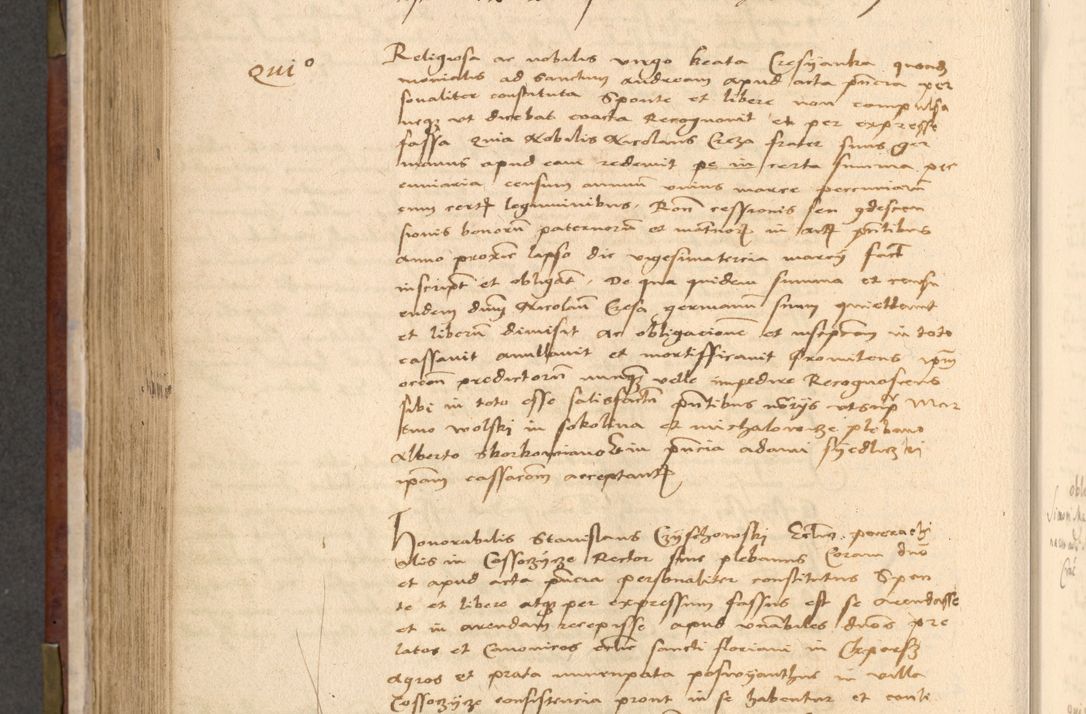 Quio
Religiosa ac nobilis virgo beata Cresyanka quondam
monialis ad sanctum Andream apud acta pncia per
sonaliter constituta Sponte et libere non compulsa
neqz ut dicebat coacta Recognovit et per expresse
fassa quia Nobilis Nicolaus Creza frater suus ger
manus apud eam redemit pe in certa summa pec
cuniaria censum annuum unius marce pecuniarum
cum leguminibus, Rone cessionis seu condescen
sionis bonorum paternorum et in actis pntibus
Anno proxime lapso die vigesimatercia marcy fact
inscript et obligat, De qua quidem summa et censu
eundem dnum Nicolaum Cresa germanum suum quiettavit
et liberum dimisit Ac obligacionem et inscptiom in toto
cassavit annullavit et mortifficavit Promittens ipm
occom predictorum nunqz velle impedire Recognoscens
sibi in toto esse satisfactum pntibus utsup Mar
tino Wolski in Sokolina et Michalowicze plebano
Alberto Skorkowiano in pncia Adami Syedliczki
ipam cassacom acceptante
Honorabilis Stanislaus Czyschowski Eccle parrochi
alis in Cossoczycze Rector sive plebanus Coram dno
et apud acta pncia personaliter constitutus Spon
te et libere atqz per expressum fassus est se arendasse
et in arendam recepisse apud vnabiles dnos pre
latos et Canonicos eccle sancti Floriani in Cleparz
Agros et prata nuncupata in villa
Cossoczycze consistencia pront in se habentur et conti